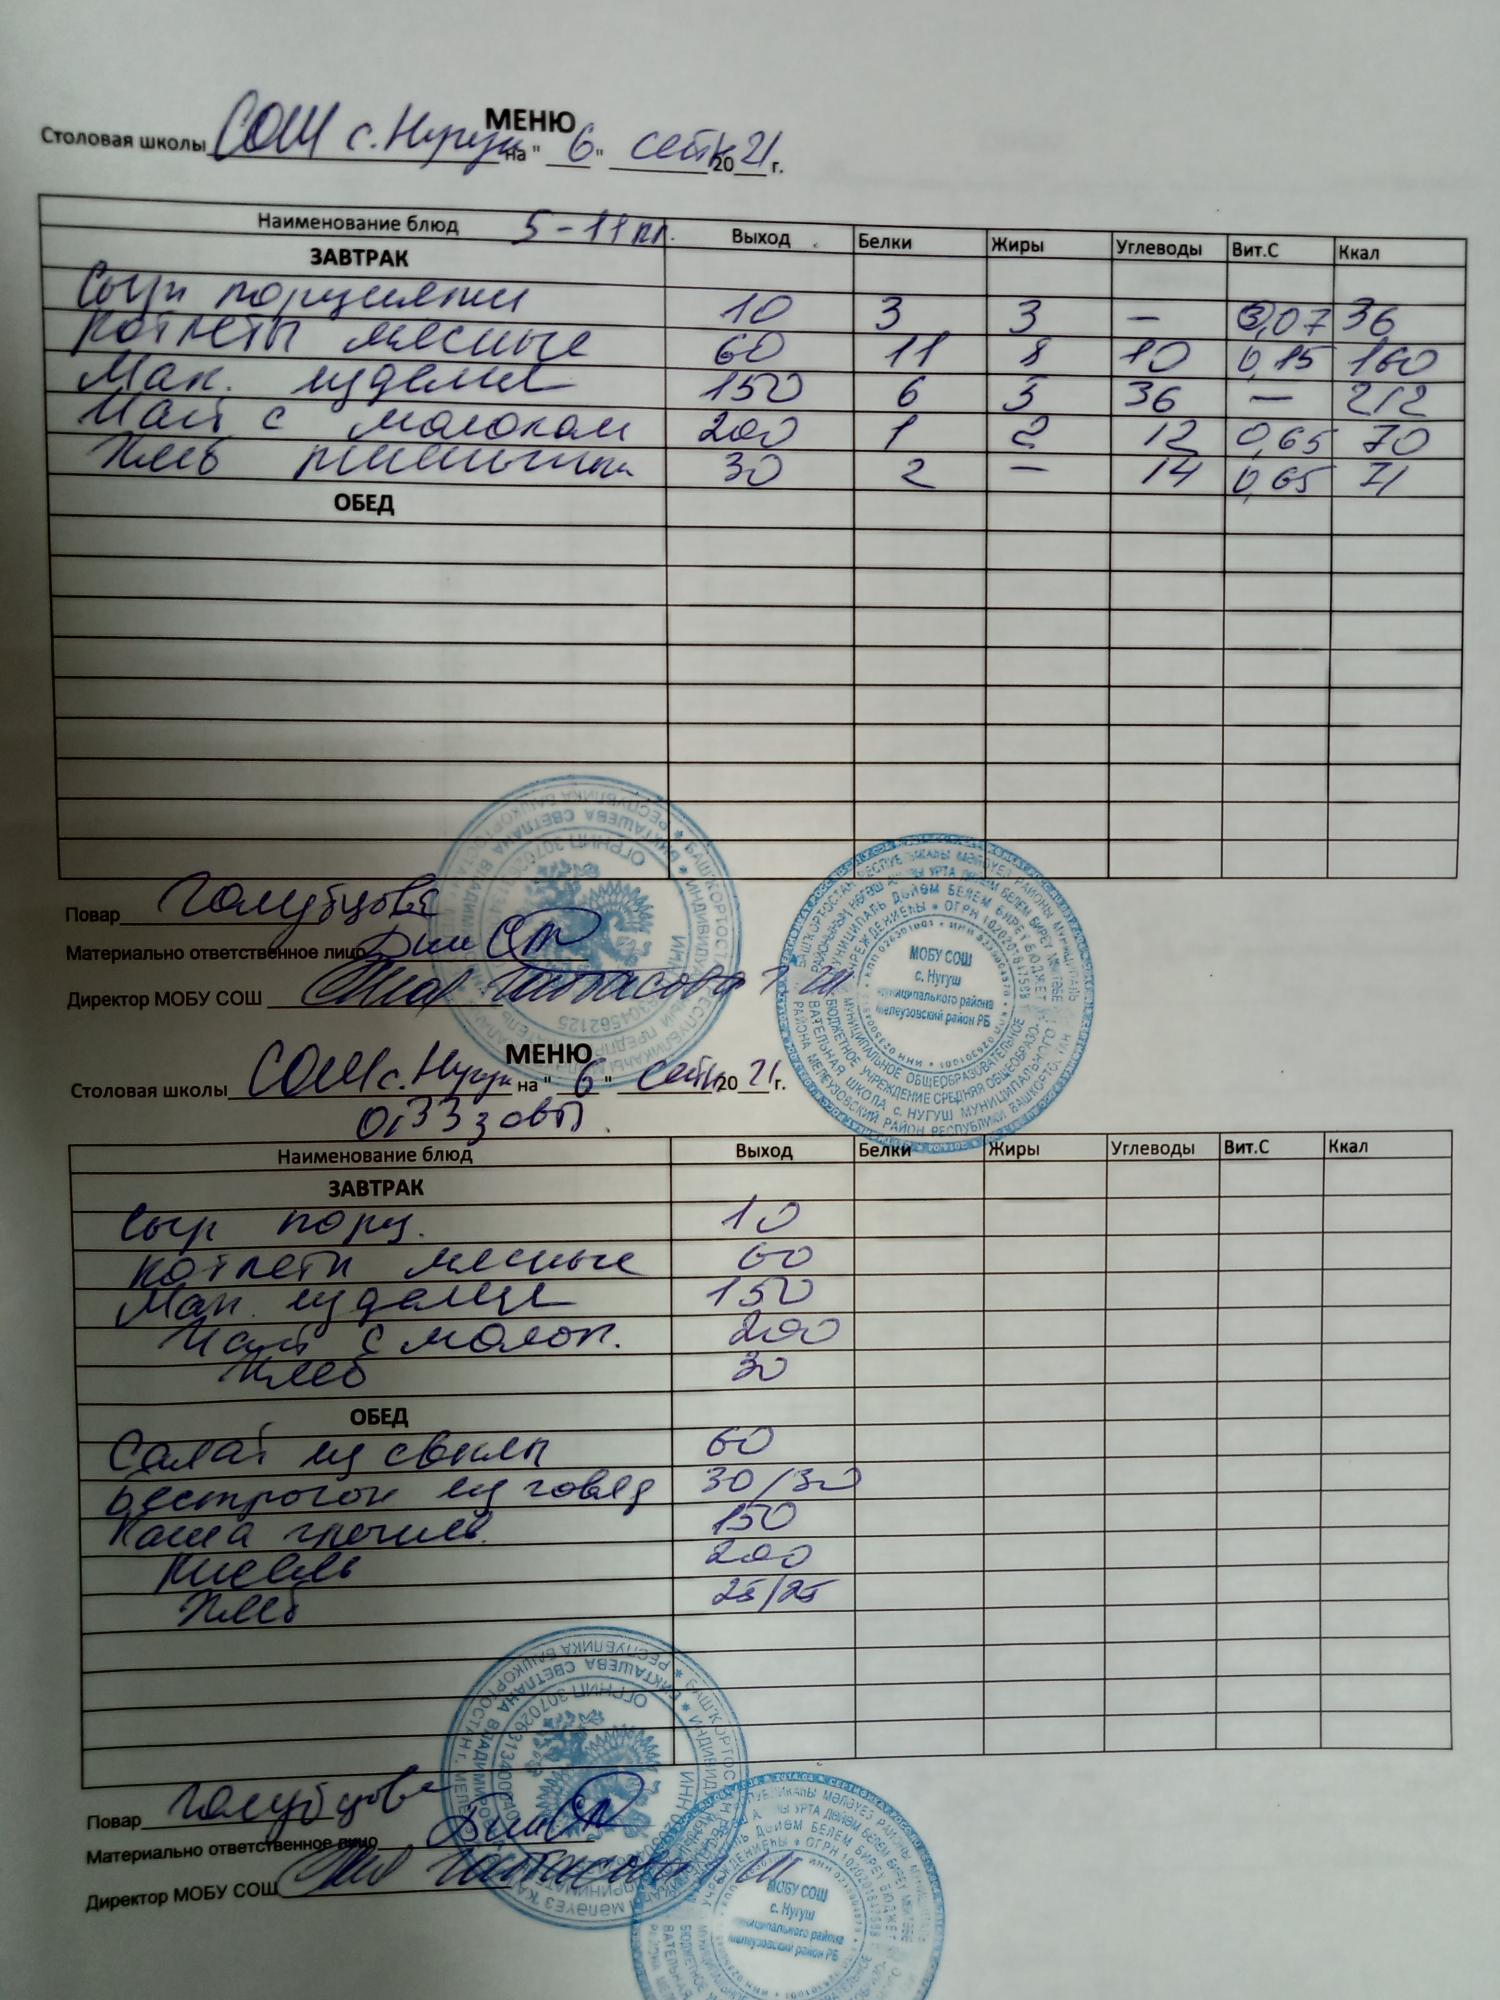 МЕНЮ
Столовая школы СОШ с. Нугуш на " 6 " сент 20 21 г.
Наименование блюд 5-11 кл. Выход Белки Жиры Углеводы Вит.С Ккал
ЗАВТРАК
Сыр порциями 10 3 3 — 0,07 36
Котлеты мясные 60 11 8 10 0,15 160
Мак. изделия 150 6 5 36 — 212
Чай с молоком 200 1 2 12 0,65 70
Хлеб пшеничн 30 2 — 14 0,65 71
ОБЕД
Повар Голубцова
Материально ответственное лицо
Директор МОБУ СОШ
МОБУ СОШ
с. Нугуш
муниципального района
Мелеузовский район РБ
МЕНЮ
Столовая школы СОШ с. Нугуш на " 6 " сент 20 21 г.
ОВЗ
Наименование блюд Выход Белки Жиры Углеводы Вит.С Ккал
ЗАВТРАК
Сыр порц. 10
Котлеты мясные 60
Мак. изделия 150
Чай с молок. 200
Хлеб 30
ОБЕД
Салат из свеклы 60
Бестрогон из говяд 30/30
Каша гречнев. 150
Кисель 200
Хлеб 25/25
Повар Голубцова
Материально ответственное лицо
Директор МОБУ СОШ
МОБУ СОШ
с. Нугуш
муниципального района
Мелеузовский район РБ